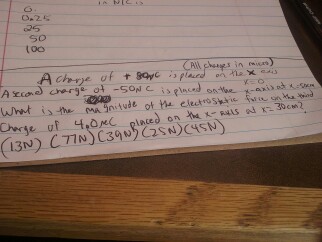 in N/C is
6.
0.25
25
50
100
(All charges in micro)
A charge of + 80μC is placed on the x axis
x=0
A second charge of -50μC is placed on the x-axis at x=50cm
What is the magnitude of the electrostatic force on the third
Charge of 4.0μC placed on the x-axis at x=30cm?
(13N) (77N) (39N) (25N) (45N)